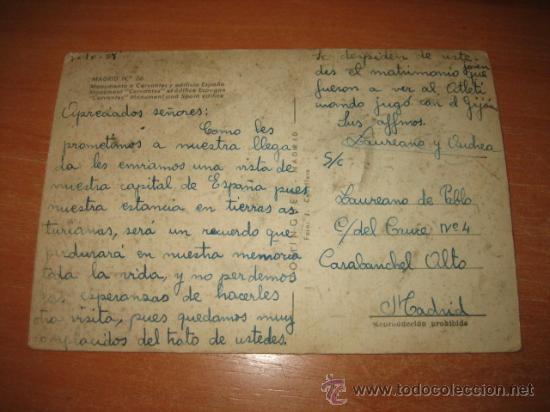 MADRID Nº 26
Monumento a Cervantes y edificio España
Monument "Cervantes" et édifice Espagne
"Cervantes" Monument and Spain edifice
Apreciados señores:
Como les
prometimos a nuestra llega
da les enviamos una vista de
nuestra capital de España pues
nuestra estancia en tierras as
turianas, será un recuerdo que
perdurará en nuestra memoria
toda la vida, y no perdemos
las esperanzas de hacerles
otra visita, pues quedamos muy
complacidos del trato de ustedes.
DOMINGUEZ - MADRID
Se despiden de uste
des el matrimonio joven que
fueron a ver al Atleti
cuando jugó con el Gijón
Sus affmos.
Laureano y Andrea
S/c
Laureano de Pablo
C/ del Cruce Nº 4
Carabanchel Alto
Madrid
Reproducción prohibida
www.todocoleccion.net